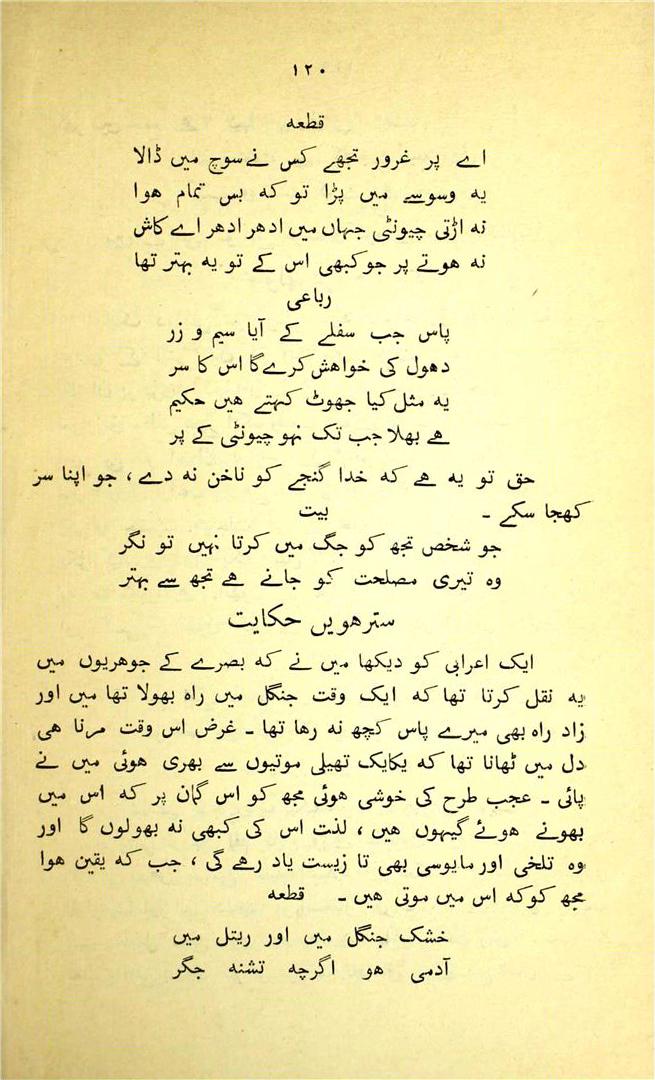 ۱۲۰
قطعه
اے پر غرور تجھے کس نے سوچ میں ڈالا
یه وسوسے میں پڑا تو که بس تمام ھوا
نه اڑتی چیونٹی جہاں میں ادھر ادھر اے کاش
نه ھوتے پر جو کبھی اس کے تو یه بہتر تھا
رباعی
پاس جب سفلے کے آیا سیم و زر
دھول کی خواھش کرے گا اس کا سر
یه مثل کیا جھوٹ کہتے ھیں حکیم
ھے بھلا جب تک نہو چیونٹی کے پر
حق تو یه ھے که خدا گنجے کو ناخن نه دے ، جو اپنا سر
کھجا سکے ۔ بیت
جو شخص تجھ کو جگ میں کرتا نہیں تو نگر
وہ تیری مصلحت کو جانے ھے تجھ سے بہتر
سترھویں حکایت
ایک اعرابی کو دیکھا میں نے که بصرے کے جوھریوں میں
یه نقل کرتا تھا که ایک وقت جنگل میں راہ بھولا تھا میں اور
زاد راہ بھی میرے پاس کچھ نه رھا تھا ۔ غرض اس وقت مرنا ھی
دل میں ٹھانا تھا که یکایک تھیلی موتیوں سے بھری ھوئی میں نے
پائی ۔ عجب طرح کی خوشی ھوئی مجھ کو اس گمان پر که اس میں
بھونے ھوئے گیہوں ھیں ، لذت اس کی کبھی نه بھولوں گا اور
وہ تلخی اور مایوسی بھی تا زیست یاد رھے گی ، جب که یقین ھوا
مجھ کو که اس میں موتی ھیں ۔ قطعه
خشک جنگل میں اور ریتل میں
آدمی ھو اگرچه تشنه جگر